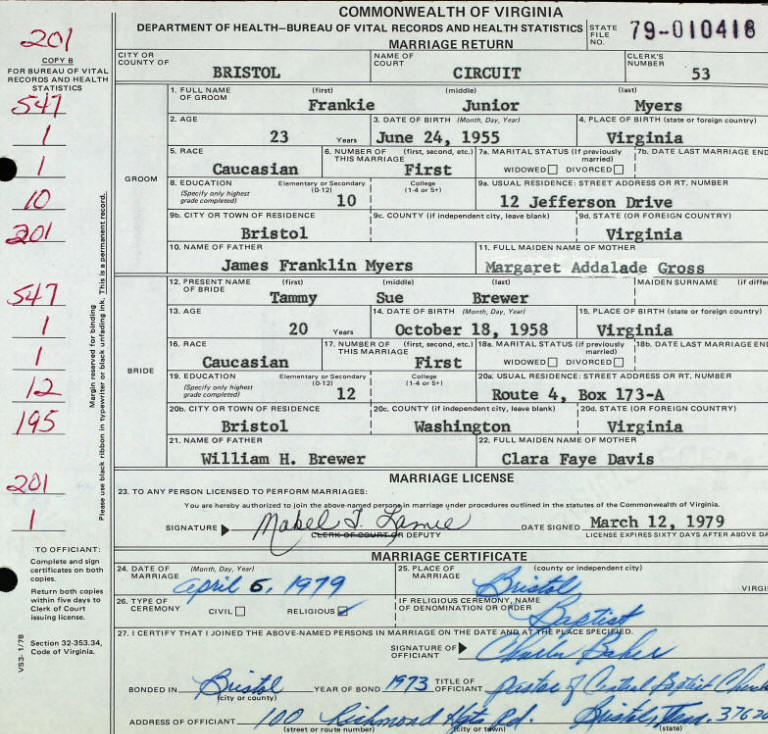 COMMONWEALTH OF VIRGINIA
DEPARTMENT OF HEALTH—BUREAU OF VITAL RECORDS AND HEALTH STATISTICS
MARRIAGE RETURN
STATE FILE NO. 79-010418
201
COPY B
FOR BUREAU OF VITAL RECORDS AND HEALTH STATISTICS
547
1
1
10
201
547
1
1
12
195
201
1
Margin reserved for binding
Please use black ribbon in typewriter or black unfading ink. This is a permanent record.
TO OFFICIANT:
Complete and sign certificates on both copies.
Return both copies within five days to Clerk of Court issuing license.
Section 32-353.34, Code of Virginia.
VS3 1/78
CITY OR COUNTY OF BRISTOL
NAME OF COURT CIRCUIT
CLERK'S NUMBER 53
GROOM
1. FULL NAME OF GROOM (first) (middle) (last)
Frankie Junior Myers
2. AGE 23 Years
3. DATE OF BIRTH (Month, Day, Year) June 24, 1955
4. PLACE OF BIRTH (state or foreign country) Virginia
5. RACE Caucasian
6. NUMBER OF THIS MARRIAGE (first, second, etc.) First
7a. MARITAL STATUS (If previously married) WIDOWED DIVORCED
7b. DATE LAST MARRIAGE END
8. EDUCATION (Specify only highest grade completed) Elementary or Secondary (0-12) 10 College (1-4 or 5+)
9a. USUAL RESIDENCE: STREET ADDRESS OR RT. NUMBER 12 Jefferson Drive
9b. CITY OR TOWN OF RESIDENCE Bristol
9c. COUNTY (if independent city, leave blank)
9d. STATE (OR FOREIGN COUNTRY) Virginia
10. NAME OF FATHER James Franklin Myers
11. FULL MAIDEN NAME OF MOTHER Margaret Addalade Gross
BRIDE
12. PRESENT NAME OF BRIDE (first) (middle) (last) MAIDEN SURNAME (if diffe
Tammy Sue Brewer
13. AGE 20 Years
14. DATE OF BIRTH (Month, Day, Year) October 18, 1958
15. PLACE OF BIRTH (state or foreign country) Virginia
16. RACE Caucasian
17. NUMBER OF THIS MARRIAGE (first, second, etc.) First
18a. MARITAL STATUS (if previously married) WIDOWED DIVORCED
18b. DATE LAST MARRIAGE END
19. EDUCATION (Specify only highest grade completed) Elementary or Secondary (0-12) 12 College (1-4 or 5+)
20a. USUAL RESIDENCE: STREET ADDRESS OR RT. NUMBER Route 4, Box 173-A
20b. CITY OR TOWN OF RESIDENCE Bristol
20c. COUNTY (if independent city, leave blank) Washington
20d. STATE (OR FOREIGN COUNTRY) Virginia
21. NAME OF FATHER William H. Brewer
22. FULL MAIDEN NAME OF MOTHER Clara Faye Davis
MARRIAGE LICENSE
23. TO ANY PERSON LICENSED TO PERFORM MARRIAGES:
You are hereby authorized to join the above-named persons in marriage under procedures outlined in the statutes of the Commonwealth of Virginia.
SIGNATURE Mabel T. Lamie DATE SIGNED March 12, 1979
CLERK OF COURT OR DEPUTY LICENSE EXPIRES SIXTY DAYS AFTER ABOVE DA
MARRIAGE CERTIFICATE
24. DATE OF MARRIAGE (Month, Day, Year) April 6, 1979
25. PLACE OF MARRIAGE (county or independent city) Bristol VIRGI
26. TYPE OF CEREMONY CIVIL RELIGIOUS
IF RELIGIOUS CEREMONY, NAME OF DENOMINATION OR ORDER Baptist
27. I CERTIFY THAT I JOINED THE ABOVE-NAMED PERSONS IN MARRIAGE ON THE DATE AND AT THE PLACE SPECIFIED.
SIGNATURE OF OFFICIANT Charles Baker
BONDED IN Bristol (city or county) YEAR OF BOND 1973 TITLE OF OFFICIANT pastor of Central Baptist Church
ADDRESS OF OFFICIANT 100 Richmond Hgts Rd. Bristol, Tenn. 3762
(street or route number) (city or town) (state)